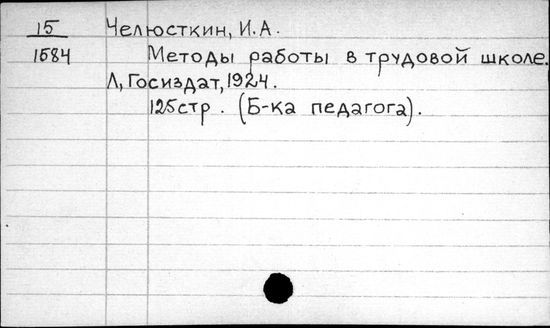 15 Челюсткин, И.А.
1584 Методы работы в трудовой школе.
Л, Госиздат, 1924.
125стр. (Б-ка педагога).